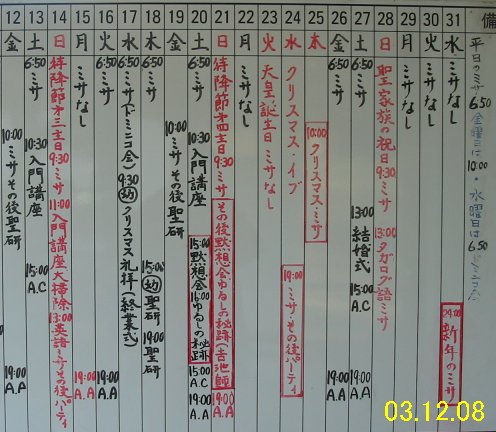 12 13 14 15 16 17 18 19 20 21 22 23 24 25 26 27 28 29 30 31 備
金 土 日 月 火 水 木 金 土 日 月 火 水 木 金 土 日 月 火 水
10:00 ミサ その後聖研
19:00 A.A
6:50 ミサ
10:30 入門講座
15:00 A.C
待降節第三主日 9:30 ミサ 11:00 入門講座 大掃除 13:00 英語ミサ その後パーティ
ミサなし
19:00 A.A
6:50 ミサ
19:00 A.A
6:50 ミサ(ドミニコ会) 9:30 幼 クリスマス礼拝(終業式)
6:50 ミサ
15:00 幼 聖研
19:00 聖研
10:00 ミサ その後聖研
6:50 ミサ
10:30 入門講座
15:00 黙想会
ゆるしの秘跡
15:00 A.C
19:00 A.A
待降節第四主日 9:30 ミサ
その後黙想会 ゆるしの秘跡
19:00 A.A
ミサなし
天皇誕生日 ミサなし
クリスマス・イブ
19:00 ミサ・その後パーティ
10:00 クリスマスミサ
6:50 ミサ
19:00 A.A
6:50 ミサ
13:00 結婚式
15:00 A.C
19:00 A.A
聖家族の祝日 9:30 ミサ 13:00 タガログ語ミサ
ミサなし
ミサなし
ミサなし
24:00 新年のミサ
平日のミサ 6:50 金曜日は 10:00・水曜日は 6:50
03.12.08